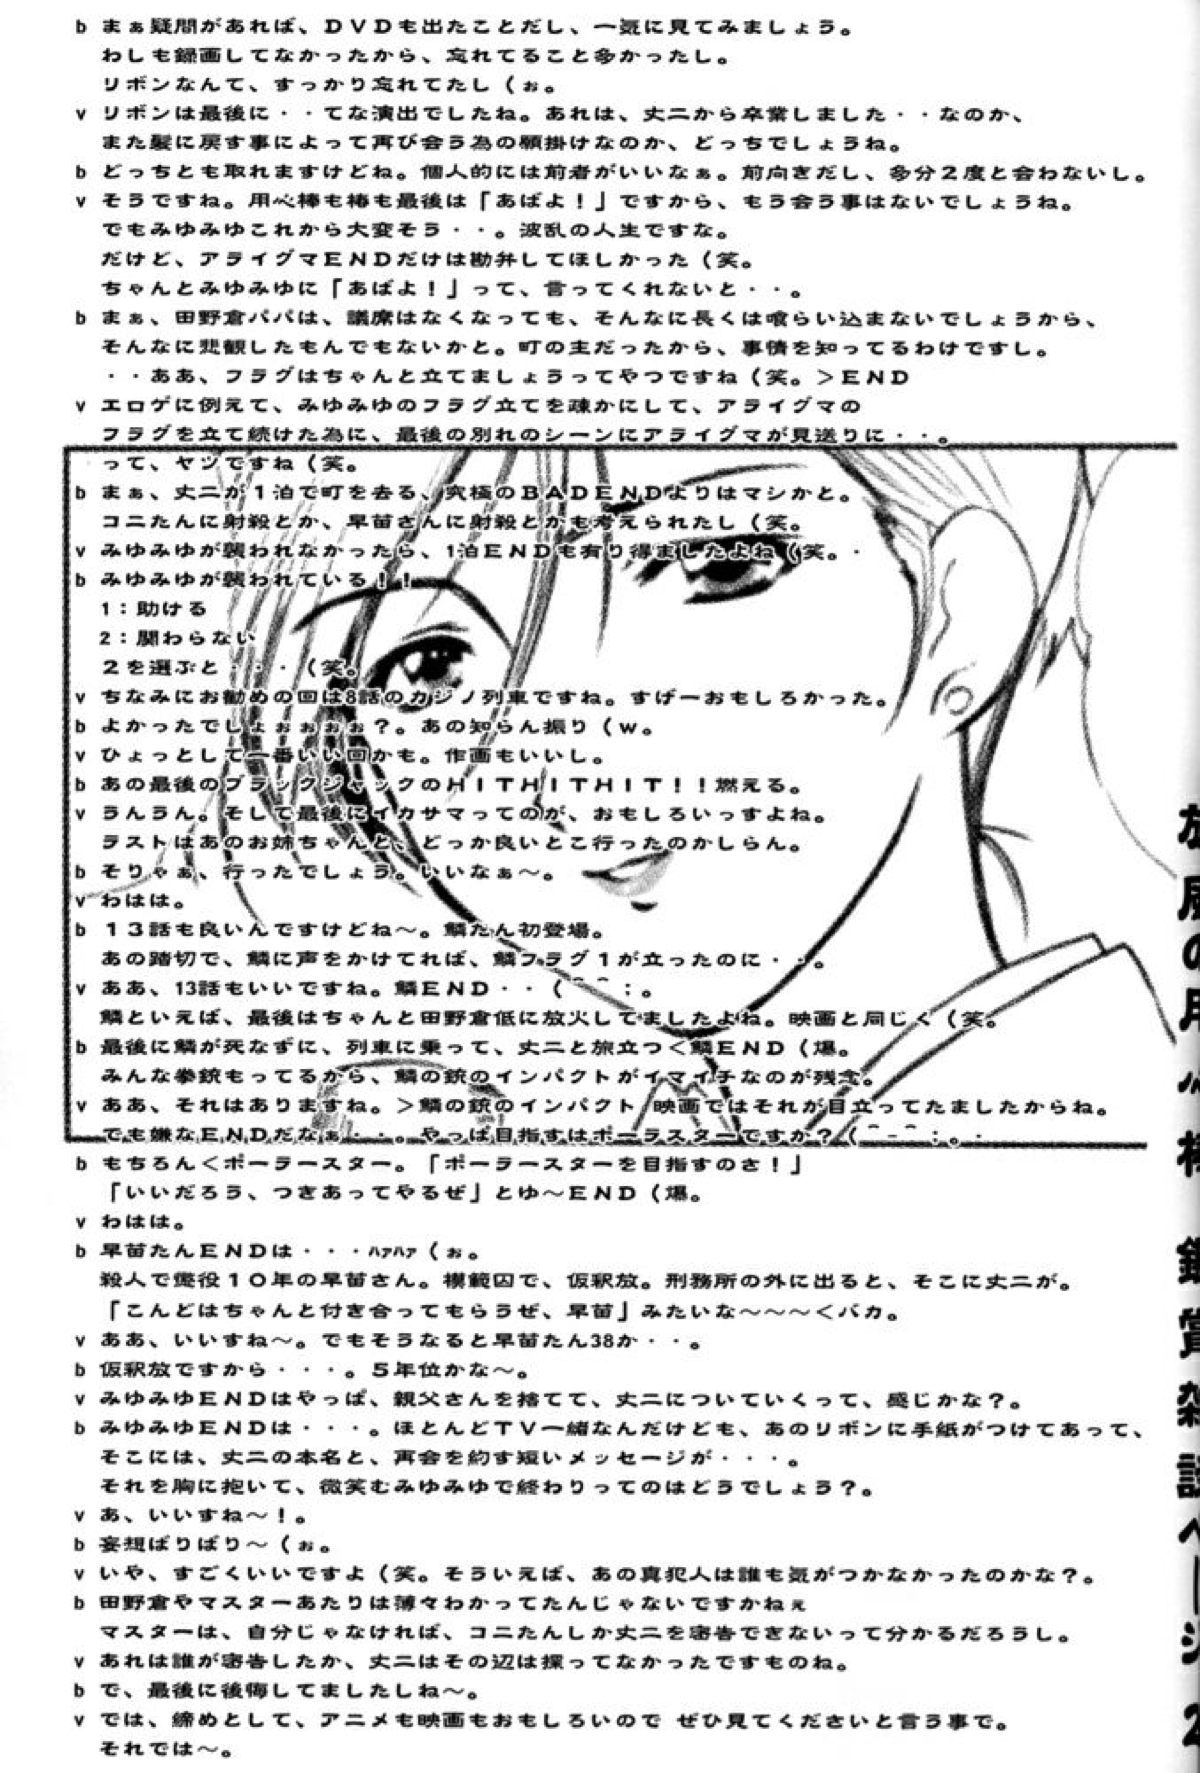 b まぁ疑問があれば、DVDも出たことだし、一気に見てみましょう。
わしも録画してなかったから、忘れてること多かったし。
リボンなんて、すっかり忘れてたし（ぉ。
v リボンは最後に・・てな演出でしたね。あれは、丈二から卒業しました・・なのか、
また髪に戻す事によって再び会う為の願掛けなのか、どっちでしょうね。
b どっちとも取れますけどね。個人的には前者がいいなぁ。前向きだし、多分2度と会わないし。
v そうですね。用心棒も椿も最後は「あばよ！」ですから、もう会う事はないでしょうね。
でもみゆみゆこれから大変そう・・。波乱の人生ですな。
だけど、アライグマENDだけは勘弁してほしかった（笑。
ちゃんとみゆみゆに「あばよ！」って、言ってくれないと・・。
b まぁ、田野倉パパは、議席はなくなっても、そんなに長くは喰らい込まないでしょうから、
そんなに悲観したもんでもないかと。町の主だったから、事情を知ってるわけですし。
・・ああ、フラグはちゃんと立てましょうってやつですね（笑。＞END
v エロゲに例えて、みゆみゆのフラグ立てを疎かにして、アライグマの
フラグを立て続けた為に、最後の別れのシーンにアライグマが見送りに・・。
って、ヤツですね（笑。
b まぁ、丈二が1泊で町を去る、究極のBADENDよりはマシかと。
コニたんに射殺とか、早苗さんに射殺とかも考えられたし（笑。
v みゆみゆが襲われなかったら、1泊ENDも有り得ましたよね（笑。・
b みゆみゆが襲われている！！
1：助ける
2：関わらない
2を選ぶと・・・（笑。
v ちなみにお勧めの回は8話のカジノ列車ですね。すげーおもしろかった。
b よかったでしょぉぉぉぉ？。あの知らん振り（w。
v ひょっとして一番いい回かも。作画もいいし。
b あの最後のブラックジャックのHITHITHIT！！燃える。
v うんうん。そして最後にイカサマってのが、おもしろいっすよね。
ラストはあのお姉ちゃんと、どっか良いとこ行ったのかしらん。
b そりゃぁ、行ったでしょう。いいなぁ～。
v わはは。
b 13話も良いんですけどね～。鱗たん初登場。
あの踏切で、鱗に声をかけてれば、鱗フラグ1が立ったのに・・。
v ああ、13話もいいですね。鱗END・・（⌒⌒；。
鱗といえば、最後はちゃんと田野倉低に放火してましたよね。映画と同じく（笑。
b 最後に鱗が死なずに、列車に乗って、丈二と旅立つ＜鱗END（爆。
みんな拳銃もってるから、鱗の銃のインパクトがイマイチなのが残念。
v ああ、それはありますね。＞鱗の銃のインパクト 映画ではそれが目立ってたましたからね。
でも嫌なENDだなぁ・・。やっぱ目指すはポーラスターですか？（⌒-⌒；。・
b もちろん＜ポーラースター。「ポーラースターを目指すのさ！」
「いいだろう、つきあってやるぜ」とゆ～END（爆。
v わはは。
b 早苗たんENDは・・・ﾊｧﾊｧ（ぉ。
殺人で懲役10年の早苗さん。模範囚で、仮釈放。刑務所の外に出ると、そこに丈二が。
「こんどはちゃんと付き合ってもらうぜ、早苗」みたいな～～～＜バカ。
v ああ、いいすね～。でもそうなると早苗たん38か・・。
b 仮釈放ですから・・・。5年位かな～。
v みゆみゆENDはやっぱ、親父さんを捨てて、丈二についていくって、感じかな？。
b みゆみゆENDは・・・。ほとんどTV一緒なんだけども、あのリボンに手紙がつけてあって、
そこには、丈二の本名と、再会を約す短いメッセージが・・・。
それを胸に抱いて、微笑むみゆみゆで終わりってのはどうでしょう？。
v あ、いいすね～！。
b 妄想ばりばり～（ぉ。
v いや、すごくいいですよ（笑。そういえば、あの真犯人は誰も気がつかなかったのかな？。
b 田野倉やマスターあたりは薄々わかってたんじゃないですかねぇ
マスターは、自分じゃなければ、コニたんしか丈二を密告できないって分かるだろうし。
v あれは誰が密告したか、丈二はその辺は探ってなかったですものね。
b で、最後に後悔してましたしね～。
v では、締めとして、アニメも映画もおもしろいので ぜひ見てくださいと言う事で。
それでは～。
風の用心棒 鑑賞雑談ページ2